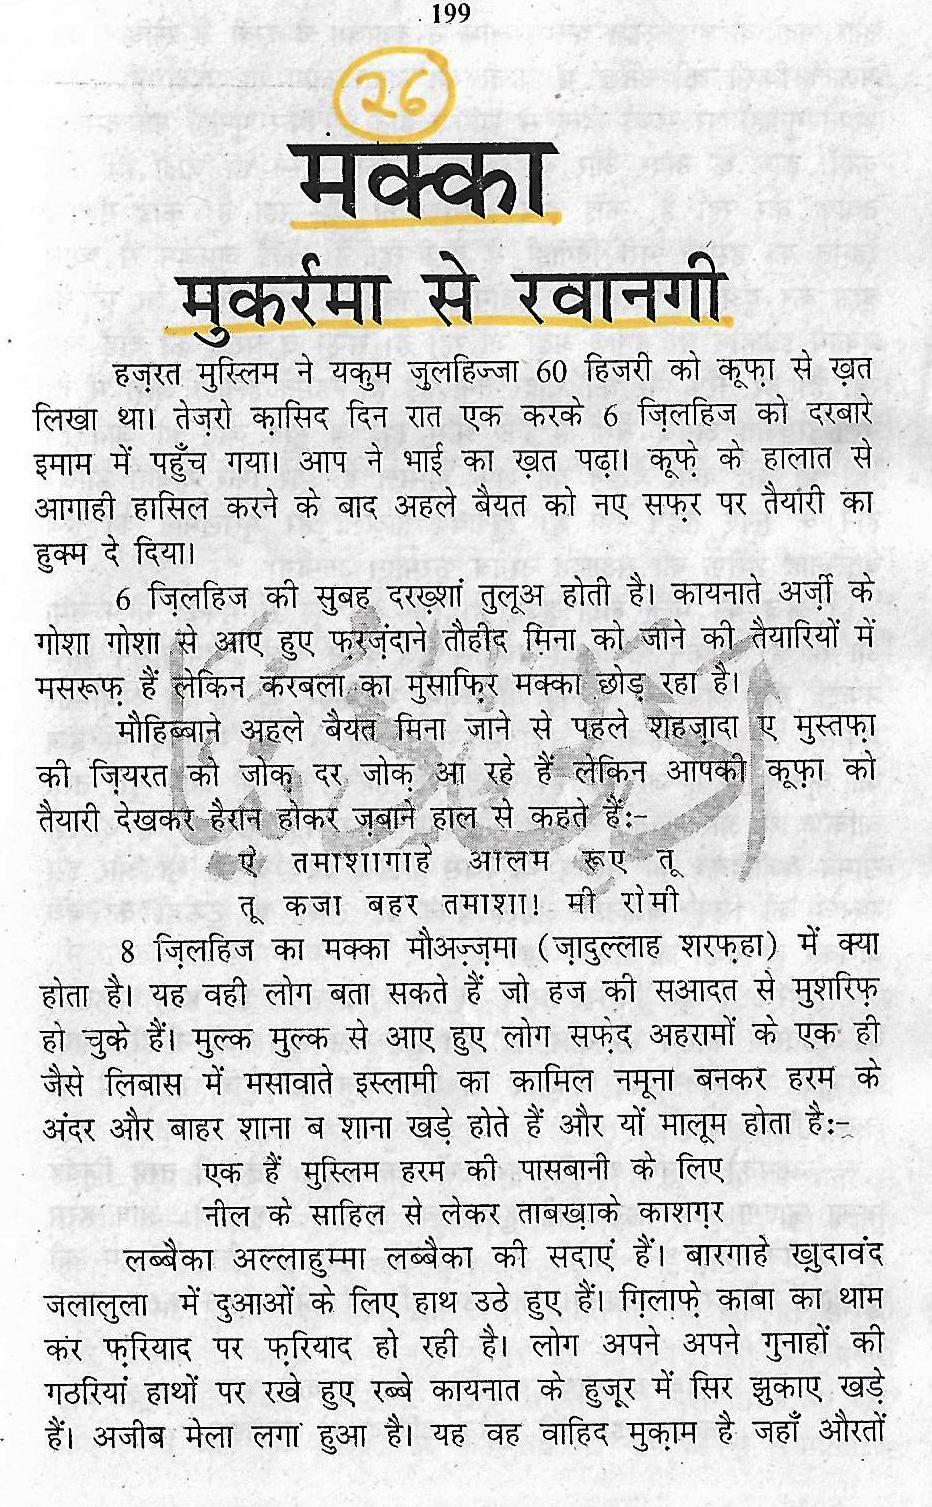 199
26
मक्का
मुकर्रमा से रवानगी
हज़रत मुस्लिम ने यकुम जुलहिज्जा 60 हिजरी को कूफ़ा से ख़त
लिखा था। तेज़रो क़ासिद दिन रात एक करके 6 ज़िलहिज को दरबारे
इमाम में पहुँच गया। आप ने भाई का ख़त पढ़ा। कूफ़े के हालात से
आगाही हासिल करने के बाद अहले बैयत को नए सफ़र पर तैयारी का
हुक्म दे दिया।
6 ज़िलहिज की सुबह दरख़्शां तुलूअ होती है। कायनाते अर्ज़ी के
गोशा गोशा से आए हुए फ़रज़ंदाने तौहीद मिना को जाने की तैयारियों में
मसरूफ़ हैं लेकिन करबला का मुसाफ़िर मक्का छोड़ रहा है।
मौहिब्बाने अहले बैयत मिना जाने से पहले शहज़ादा ए मुस्तफ़ा
की ज़ियरत को जोक़ दर जोक़ आ रहे हैं लेकिन आपकी कूफ़ा को
तैयारी देखकर हैरान होकर ज़बाने हाल से कहते हैं:-
ऐ तमाशागाहे आलम रूए तू
तू कजा बहर तमाशा! मी रोमी
8 ज़िलहिज का मक्का मौअज़्ज़मा (ज़ादुल्लाह शरफ़हा) में क्या
होता है। यह वही लोग बता सकते हैं जो हज की सआदत से मुशरिफ़
हो चुके हैं। मुल्क मुल्क से आए हुए लोग सफ़ेद अहरामों के एक ही
जैसे लिबास में मसावाते इस्लामी का कामिल नमूना बनकर हरम के
अंदर और बाहर शाना ब शाना खड़े होते हैं और यों मालूम होता है:-
एक हैं मुस्लिम हरम की पासबानी के लिए
नील के साहिल से लेकर ताबख़ाके काशग़र
लब्बैका अल्लाहुम्मा लब्बैका की सदाएं हैं। बारगाहे ख़ुदावंद
जलालुला में दुआओं के लिए हाथ उठे हुए हैं। ग़िलाफ़े काबा का थाम
कर फ़रियाद पर फ़रियाद हो रही है। लोग अपने अपने गुनाहों की
गठरियां हाथों पर रखे हुए रब्बे कायनात के हुजूर में सिर झुकाए खड़े
हैं। अजीब मेला लगा हुआ है। यह वह वाहिद मुक़ाम है जहाँ औरतों